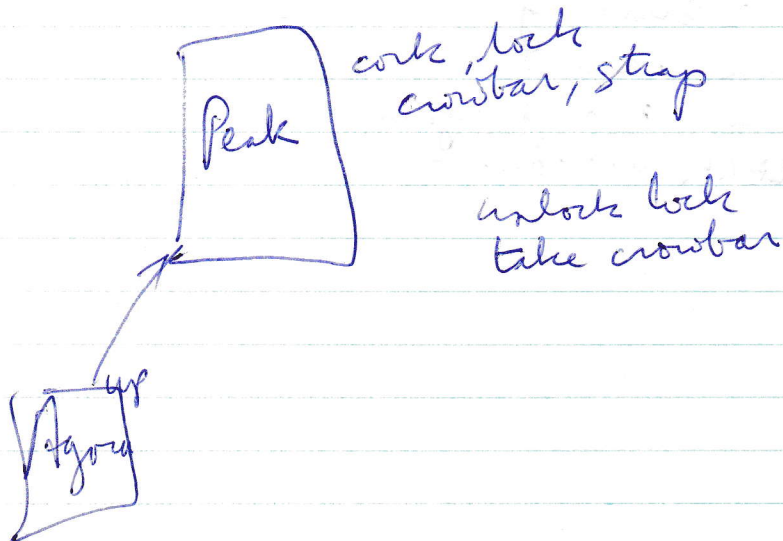 cork, lock
crowbar, strap
Peak
unlock lock
take crowbar
up
Agora